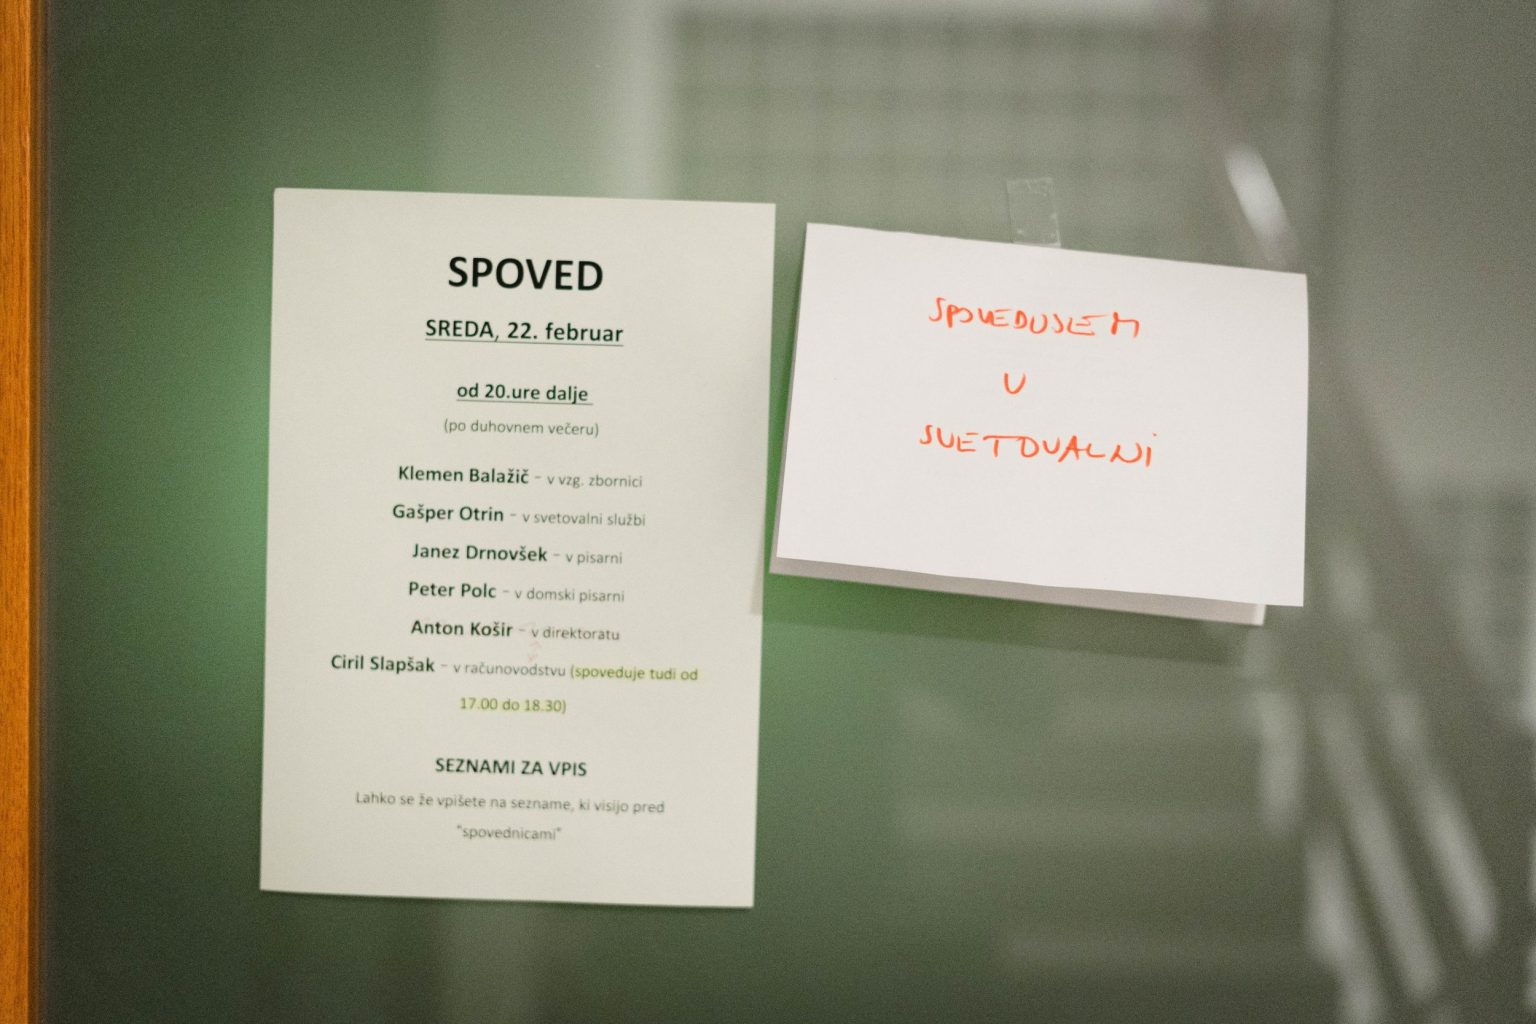 SPOVED
SREDA, 22. februar
od 20.ure dalje
(po duhovnem večeru)
Klemen Balažič - v vzg. zbornici
Gašper Otrin - v svetovalni službi
Janez Drnovšek - v pisarni
Peter Polc - v domski pisarni
Anton Košir - v direktoratu
Ciril Slapšak - v računovodstvu (spoveduje tudi od
17.00 do 18.30)
SEZNAMI ZA VPIS
Lahko se že vpišete na sezname, ki visijo pred
"spovednicami"
SPOVEDUJEM
V
SVETOVALNI